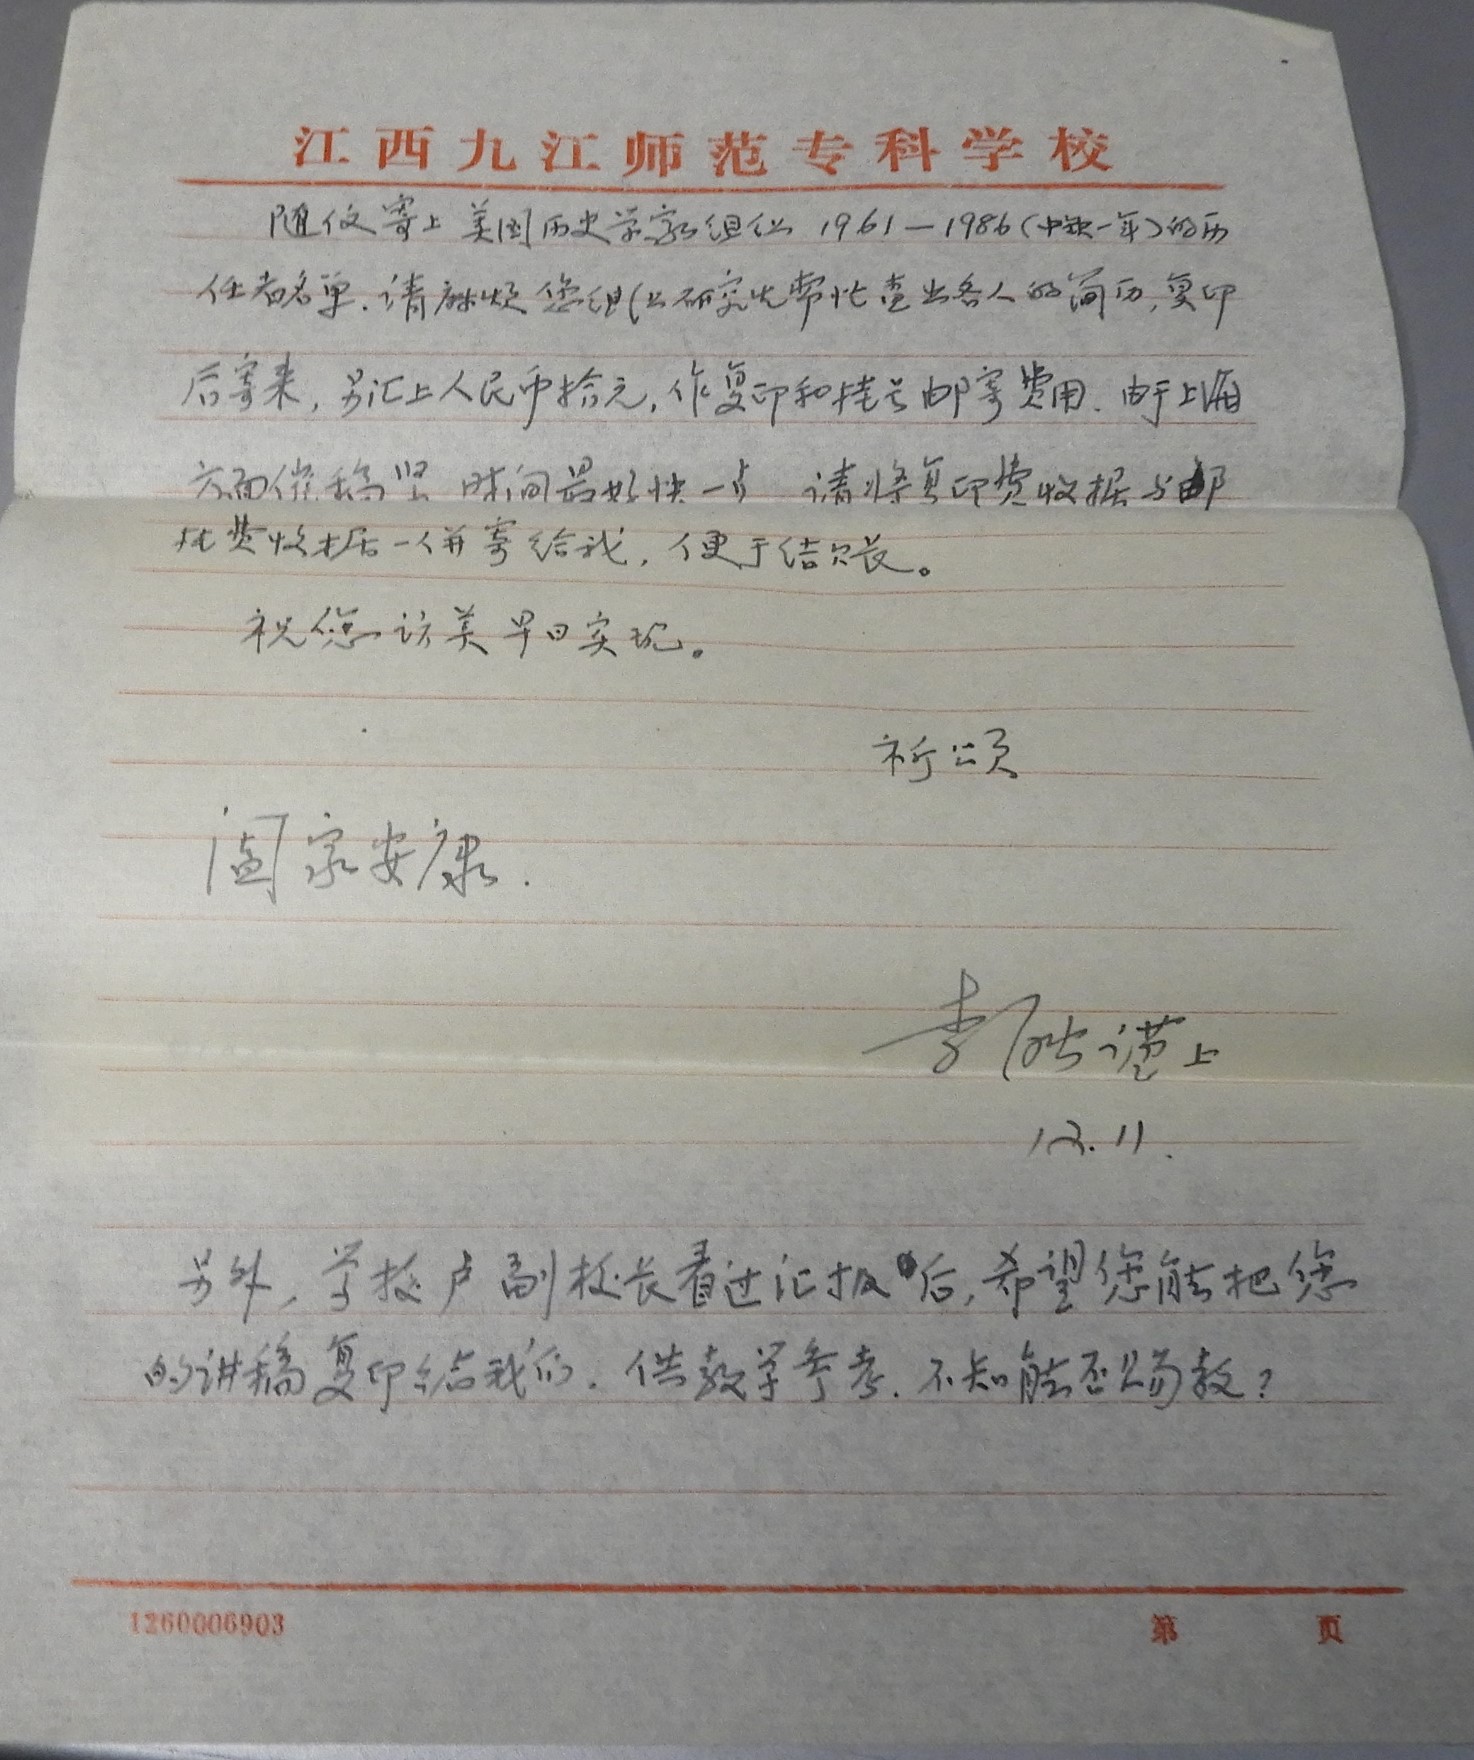 江西九江师范专科学校
随信寄上美国历史学家组织 1961—1986(中缺一年)的历
任者名单,请麻烦您组织研究生帮忙查出各人的简历,复印
后寄来,另汇上人民币拾元,作复印和挂号邮寄费用.由于上海
方面催稿紧 时间最好快一点 请将复印费收据与邮
费收据一併寄给我,便于结账。
祝您访美早日实现。
祈颂
阖家安康.
李 谨上
12.11.
另外,学校卢副校长看过汇报后,希望您能把您
的讲稿复印给我们.供教学参考.不知能否赐教?
1260006903
第 页